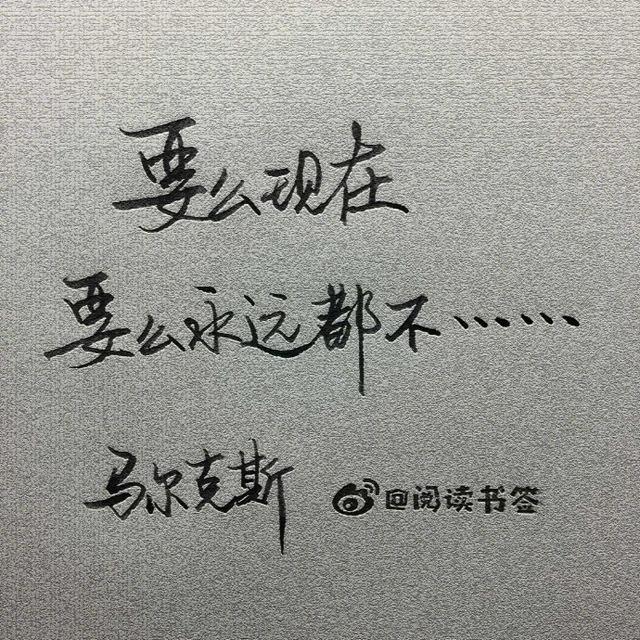 要么现在
要么永远都不……
马尔克斯
@阅读书签